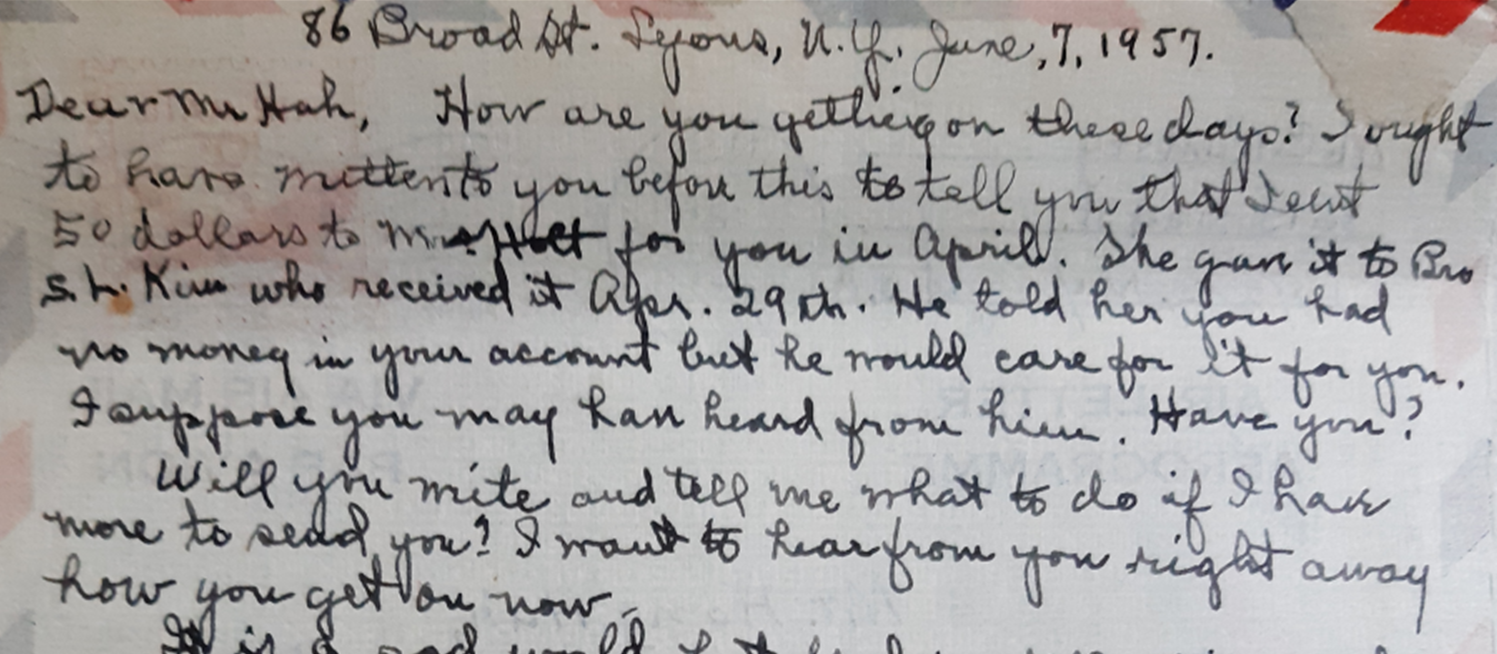 86 Broad St. Lyons, N.Y. June, 7, 1957.
Dear Mr Hah, How are you getting on these days? I ought
to have written to you before this to tell you that I sent
50 dollars to Mrs Holt for you in April. She gave it to Bro
S. L. Kim who received it Apr. 29th. He told her you had
no money in your account but he would care for it for you.
I suppose you may have heard from him. Have you?
Will you write and tell me what to do if I have
more to send you? I want to hear from you right away
how you get on now.
It is a sad world